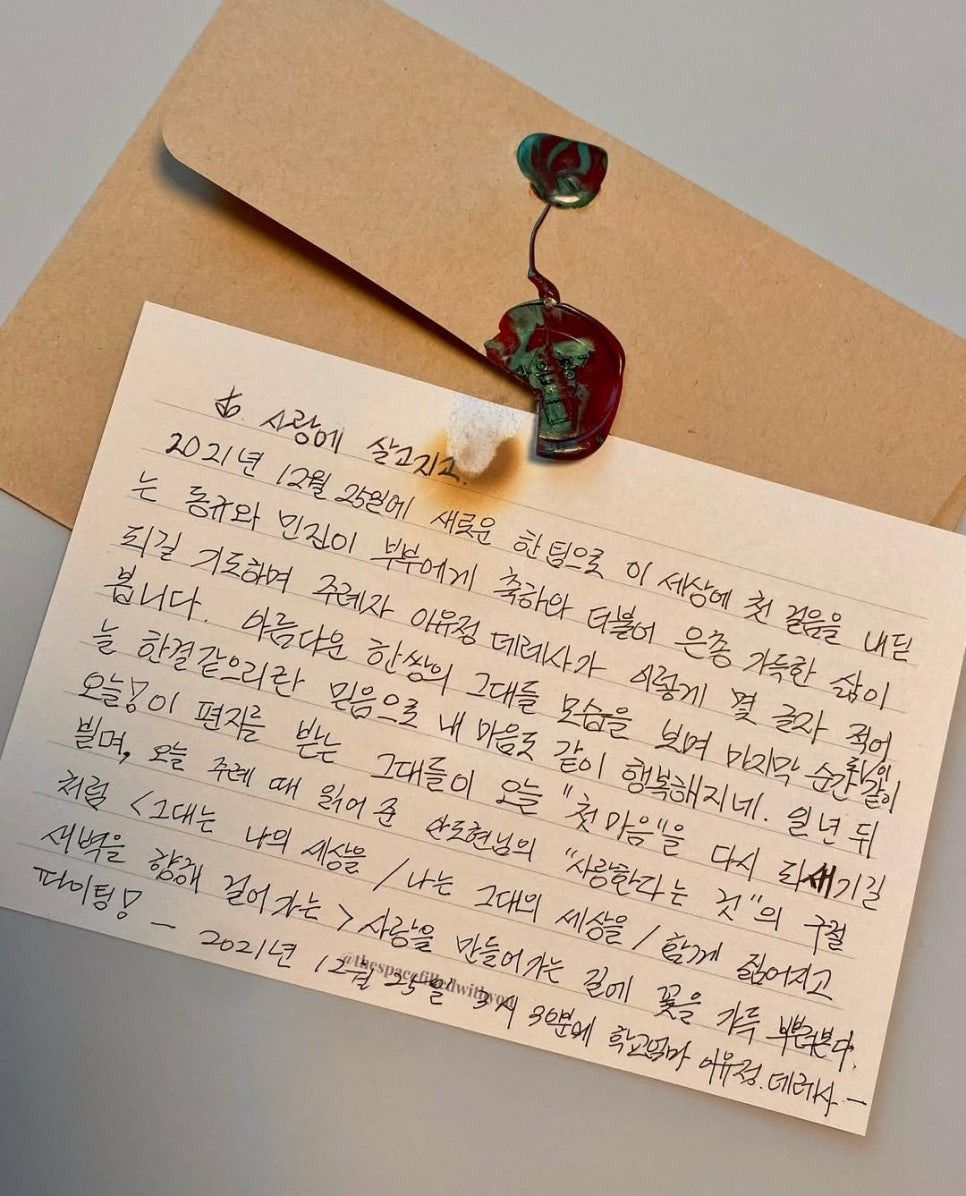 사랑에 살고지고.
2021년 12월 25일에 새로운 한 팀으로 이 세상에 첫 걸음을 내딛
는 동규와 민진이 부부에게 축하와 더불어 은총 가득한 삶이
되길 기도하며 주례자 이유정 데레사가 이렇게 몇 글자 적어
봅니다. 아름다운 한쌍의 그대들 모습을 보며 마지막 순간 같이
늘 한결같으리란 믿음으로 내 마음도 같이 행복해지네. 일년 뒤
오늘! 이 편지를 받는 그대들이 오늘 "첫 마음"을 다시 되새기길
빌며, 오늘 주례 때 읽어 준 안도현님의 "사랑한다는 것"의 구절
처럼 <그대는 나의 세상을 / 나는 그대의 세상을 / 함께 짊어지고
새벽을 향해 걸어가는> 사랑을 만들어가는 길에 꽃을 가득 뿌려본다.
파이팅! - 2021년 12월 25일 3시 30분에 학교엄마 이유정.데레사-
@thespacefilledwithyou